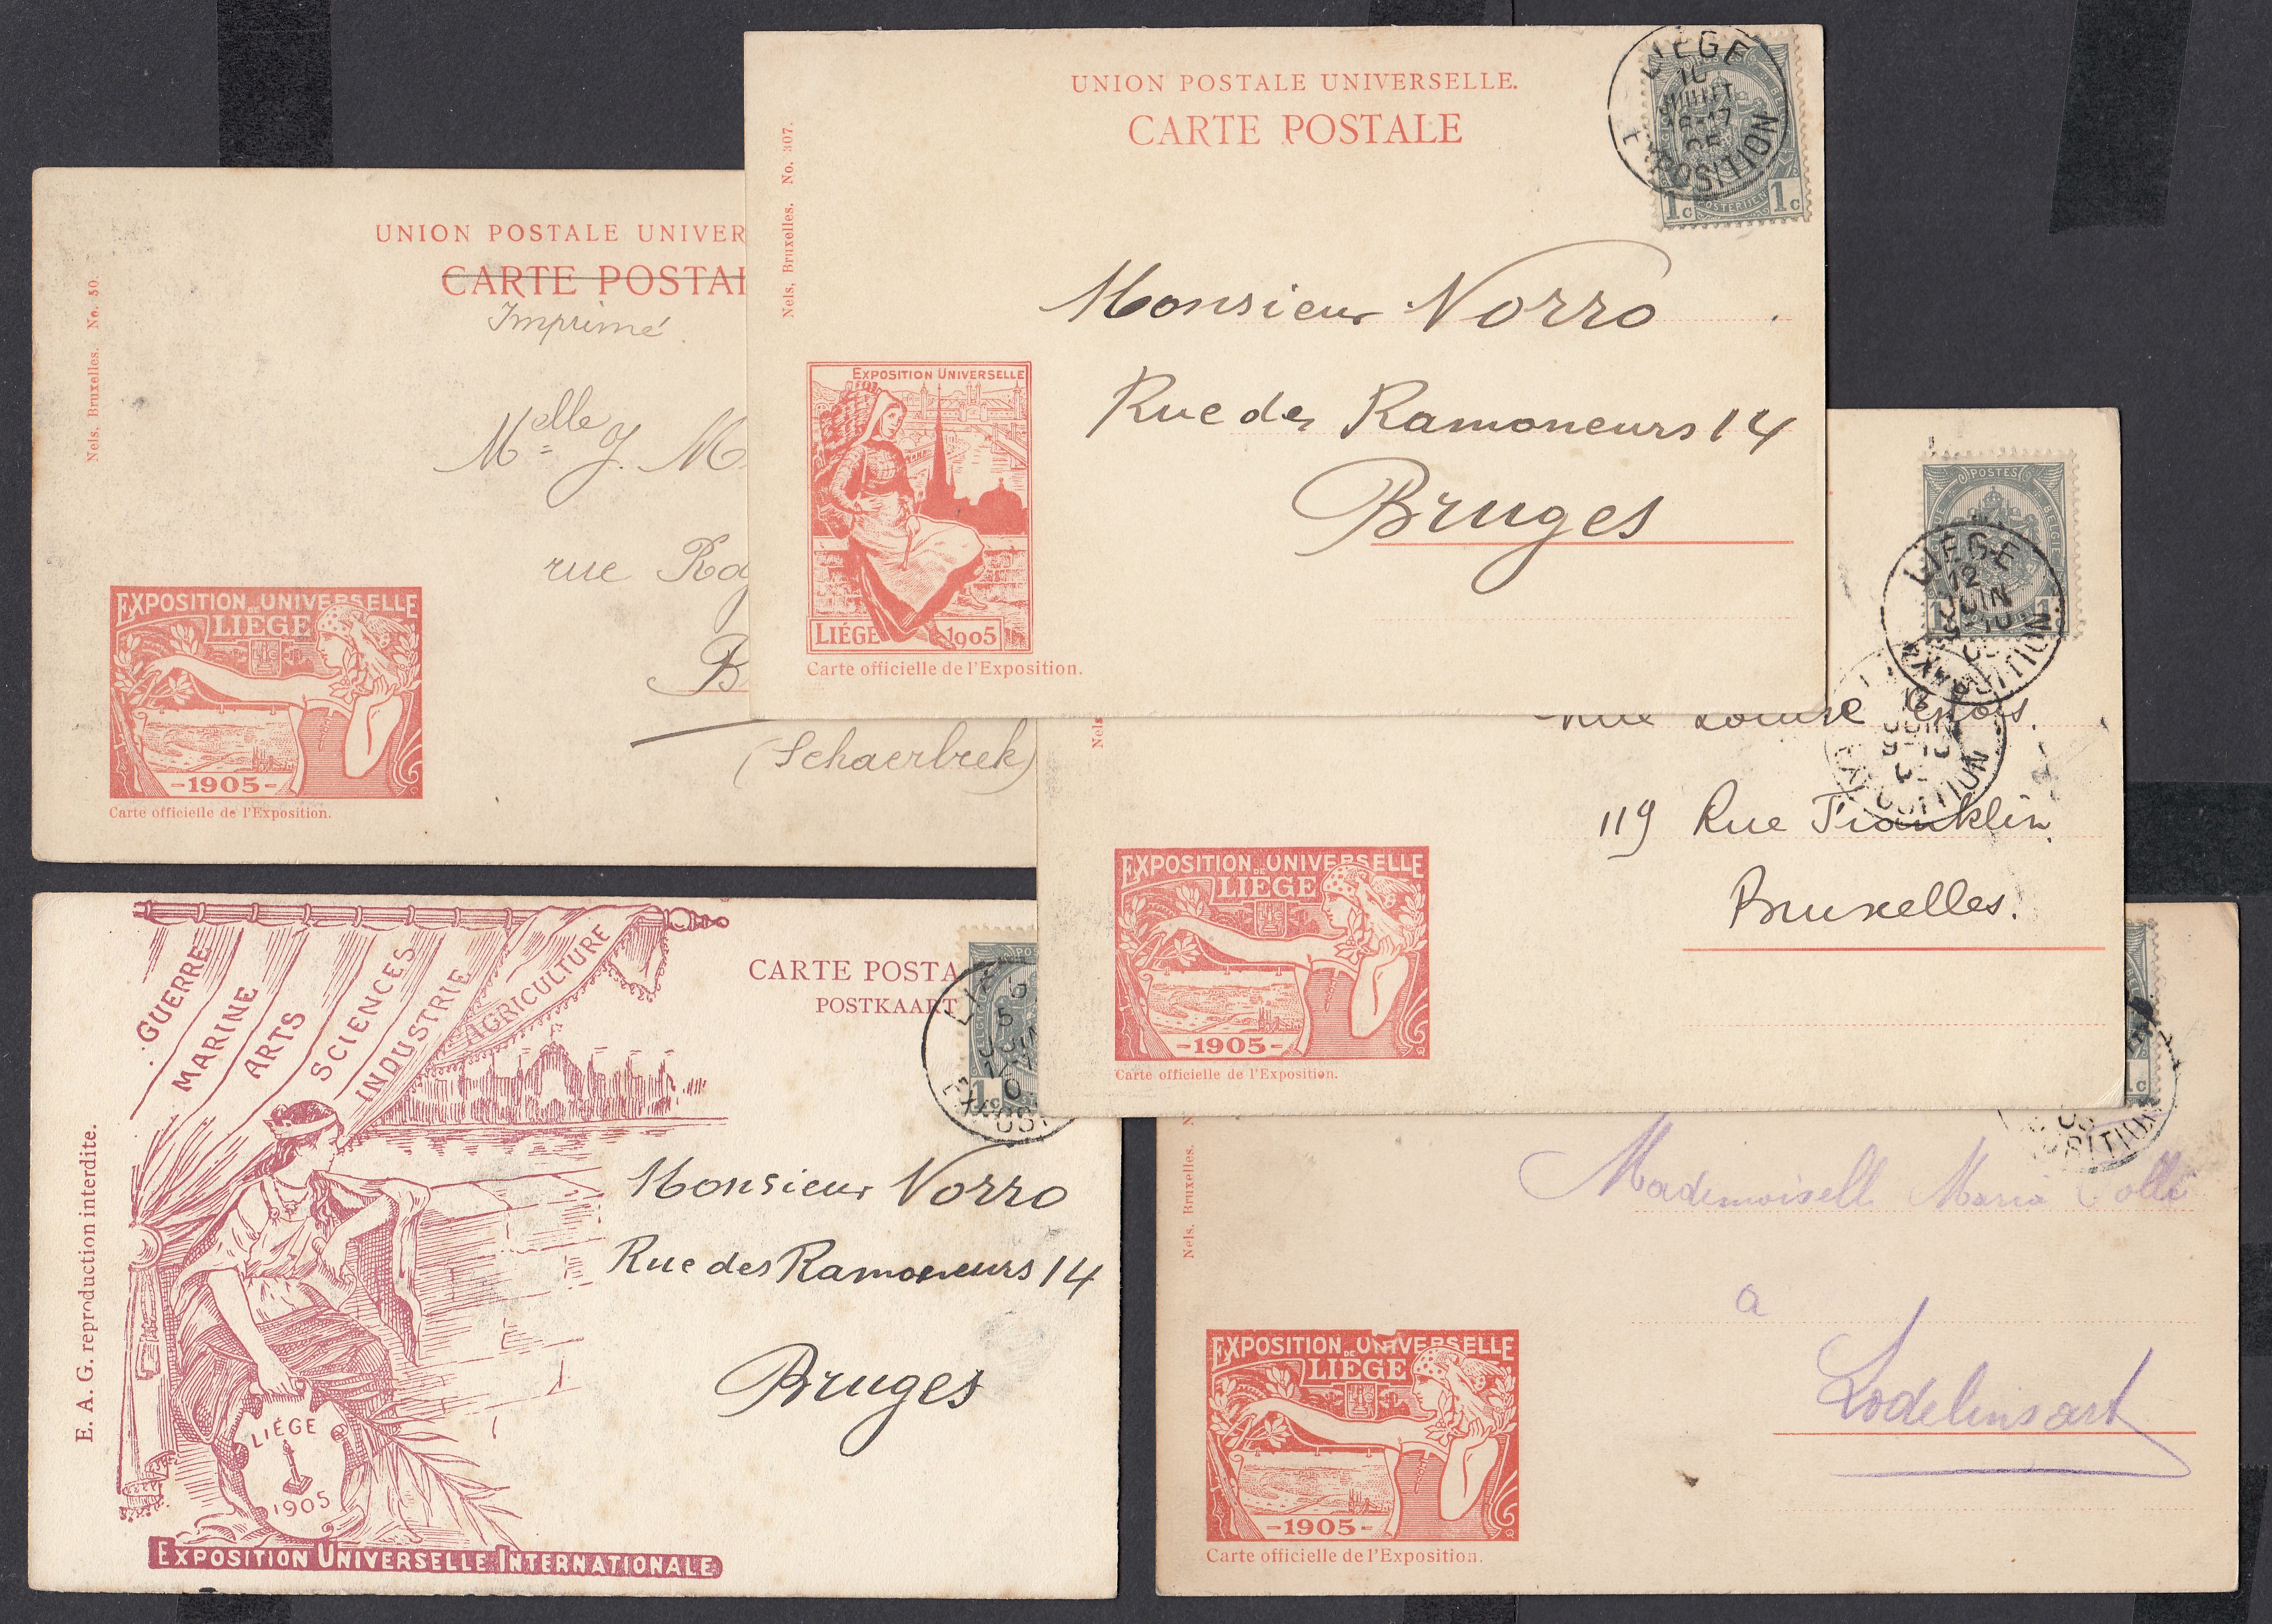 UNION POSTALE UNIVERSELLE.
CARTE POSTALE
Nels, Bruxelles. No. 307.
LIEGE
JUILLET
16-17
05
EXPOSITION
1c 1c
POSTERIJEN
Monsieur Norro
Rue des Ramoneurs 14
Bruges
EXPOSITION UNIVERSELLE
LIÉGE 1905
Carte officielle de l'Exposition.
UNION POSTALE UNIVER
CARTE POSTAL
Imprimé
Nels, Bruxelles. No. 50.
Melle J. M
rue Rog
B
(Schaerbeek)
EXPOSITION UNIVERSELLE
DE
LIÈGE
-1905-
Carte officielle de l'Exposition.
POSTES
BELGIE
LIEGE
12
JUIN
EXPOSITION
Nels
Louise
119 Rue Franklin.
Bruxelles.
EXPOSITION UNIVERSELLE
DE
LIÈGE
-1905-
Carte officielle de l'Exposition.
GUERRE
MARINE
ARTS
SCIENCES
INDUSTRIE
AGRICULTURE
CARTE POSTA
POSTKAART
E. A. G. reproduction interdite.
1c
Monsieur Norro
Rue des Ramoneurs 14
Bruges
LIÉGE
1905
EXPOSITION UNIVERSELLE INTERNATIONALE
Nels, Bruxelles. N
1c
Mademoiselle Maria
a
Lodelinsart
EXPOSITION UNIVERSELLE
DE
LIÈGE
-1905-
Carte officielle de l'Exposition.